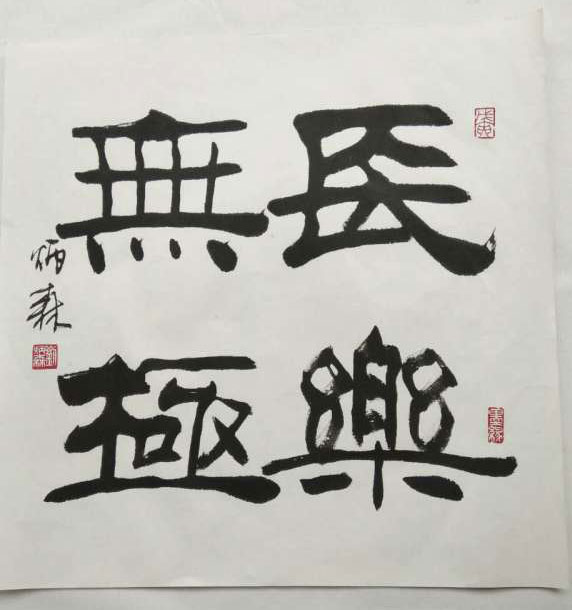 長樂
無極
炳森